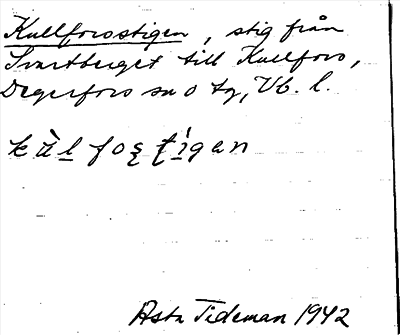 Kullforsstigen, stig från
Svartberget till Kullfors,
Degerfors sn o tg, Vb. l.
kàl fosstígan
Asta Tideman 1942